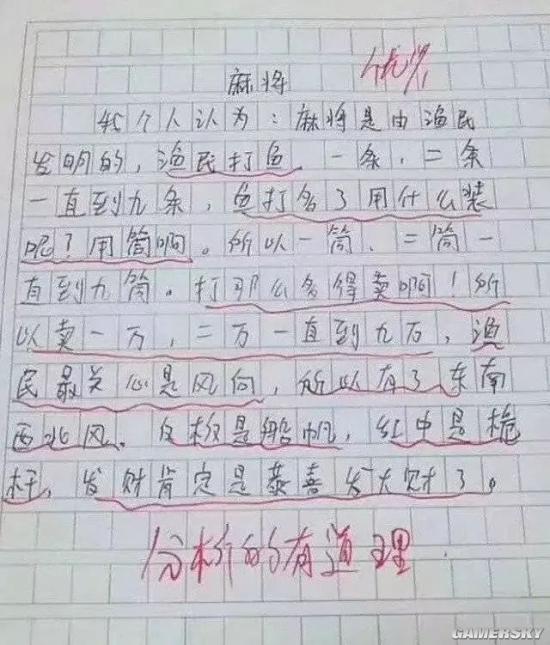 优98
麻将
我个人认为：麻将是由渔民
发明的，渔民打鱼一条，二条
一直到九条，鱼打多了用什么装
呢？用筒啊。所以一筒、二筒一
直到九筒。打那么多得卖啊！所
以卖一万，二万一直到九万，渔
民最关心是风向，所以有了东南
西北风。白板是船帆，红中是桅
杆，发财肯定是恭喜发大财了。
分析的有道理
GAMERSKY